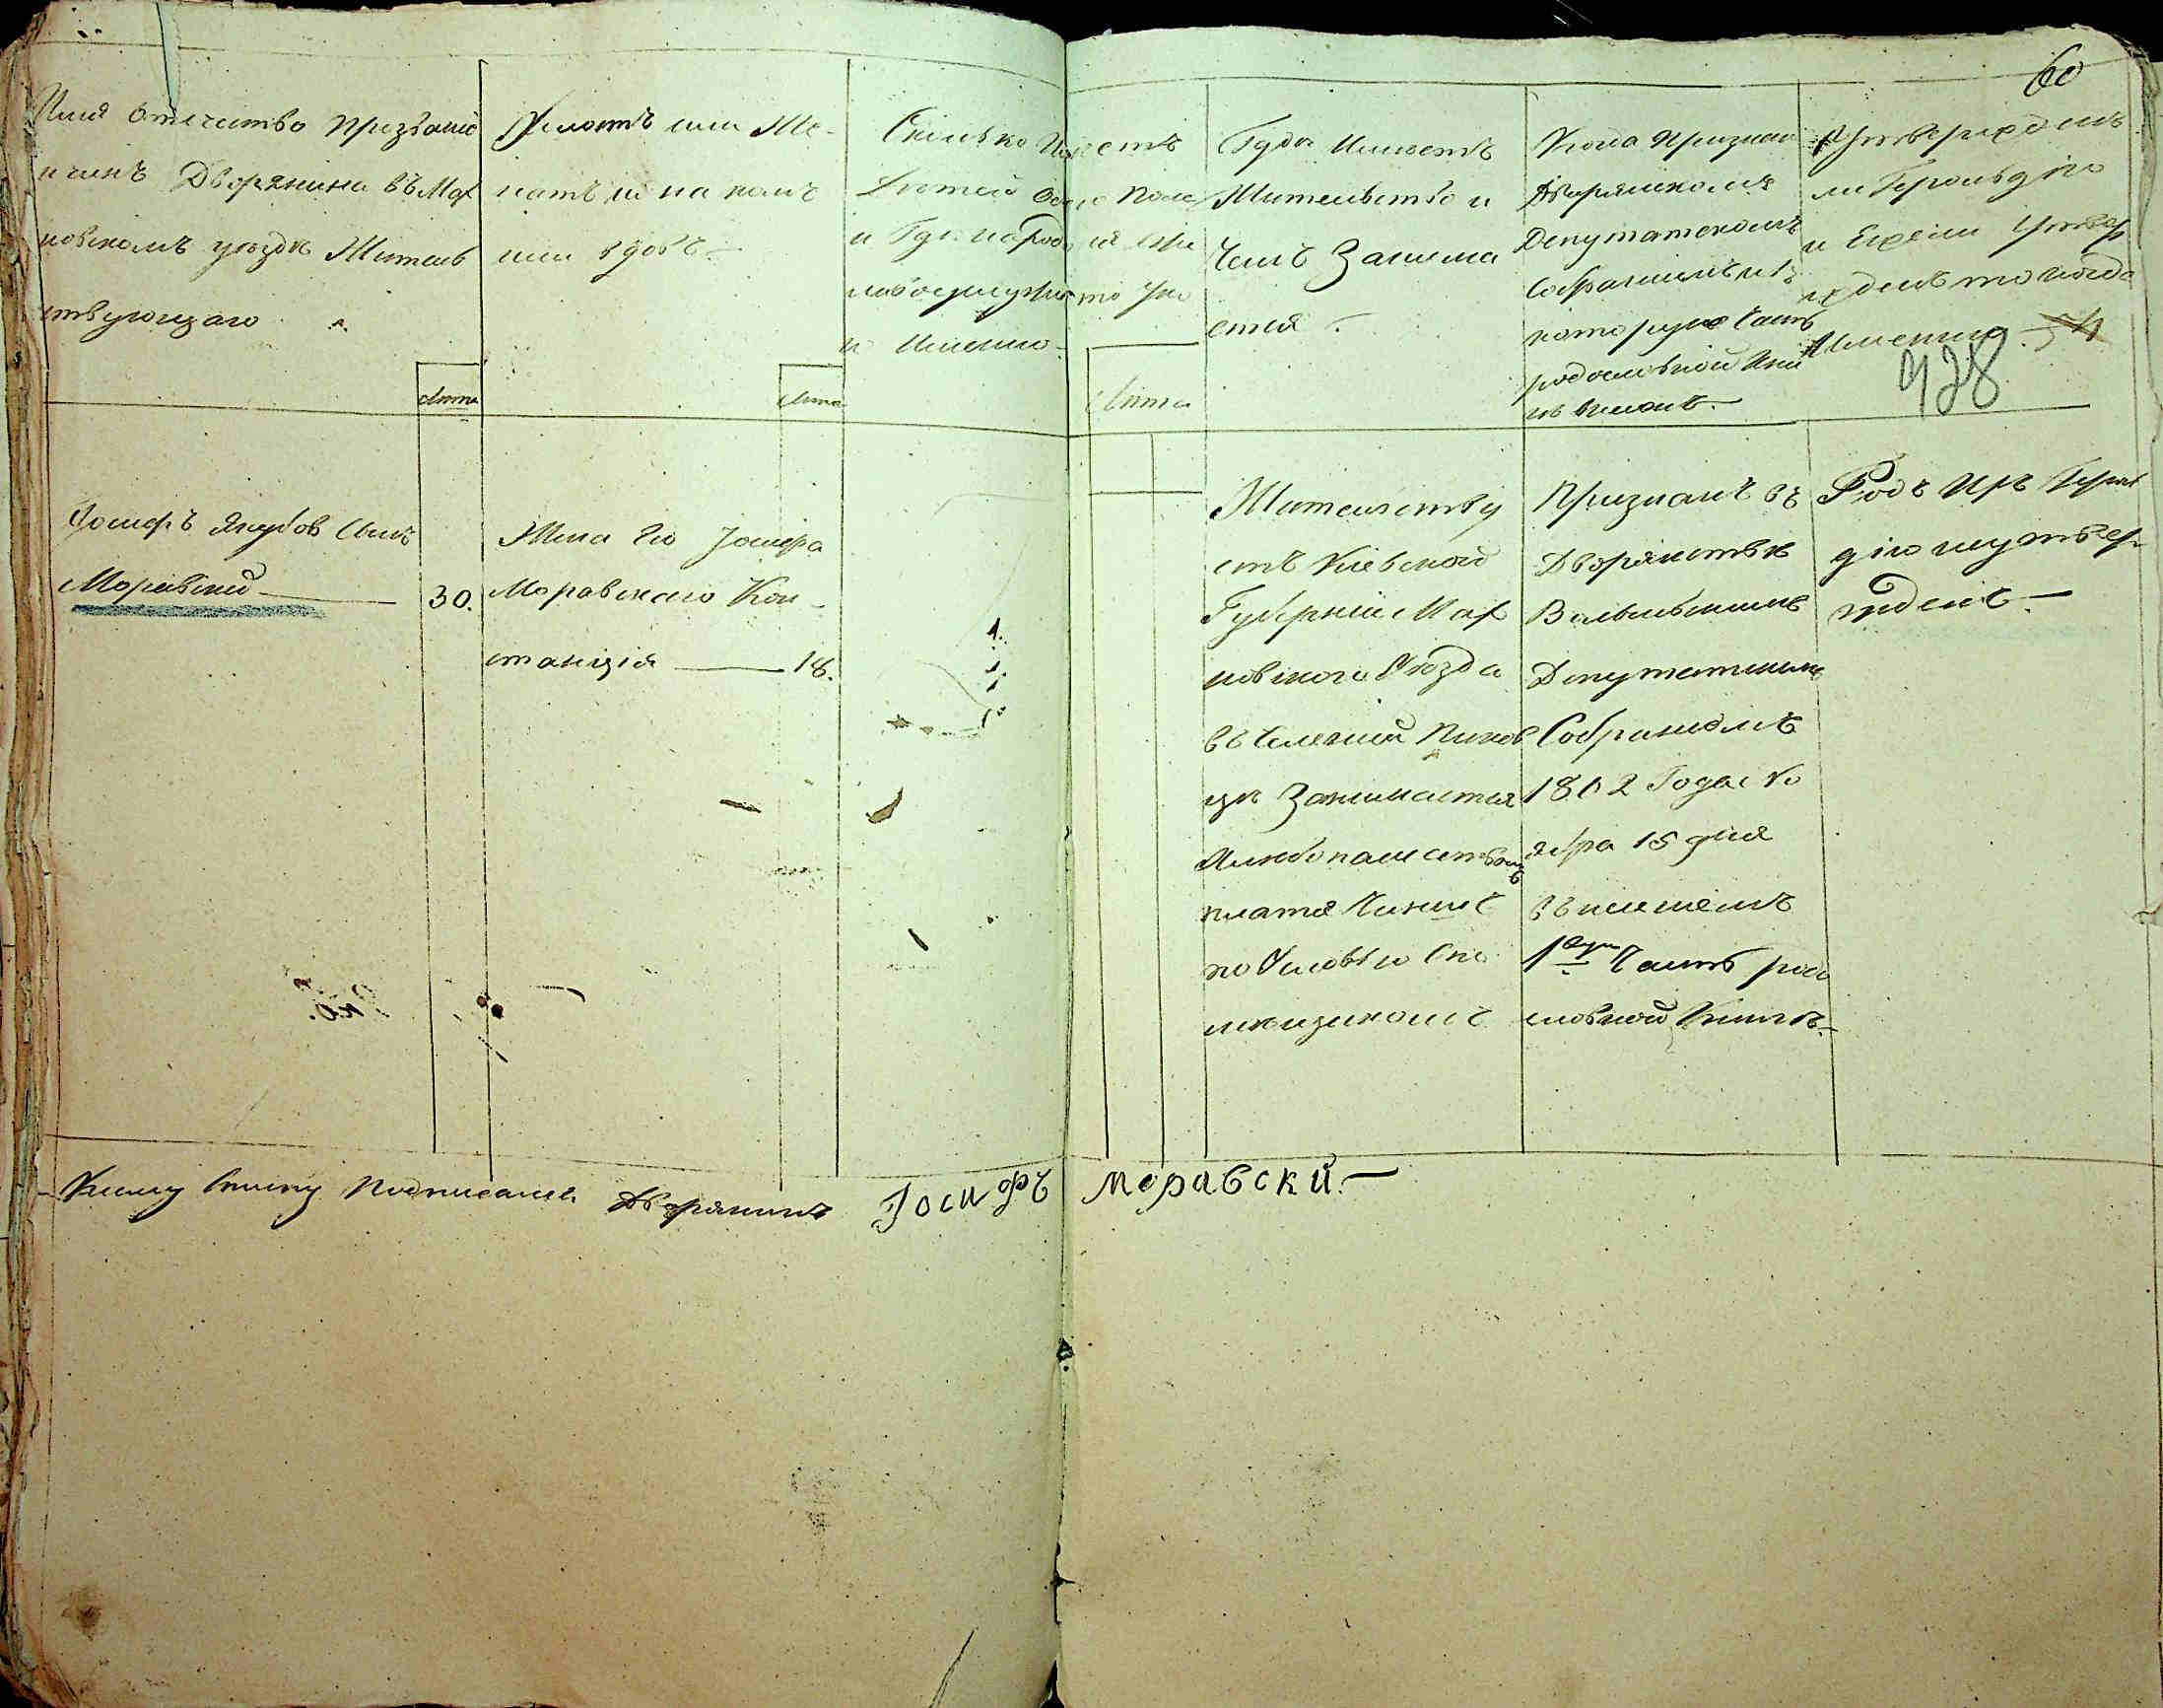 60
Имя отечество прозваніе
и чинъ Дворянина въ Мах
новскомъ уѣздѣ Житель
ствующаго
Лѣта
Холостъ или Же-
натъ и на комъ
или вдовъ.
Лѣта
Сколько Имѣетъ
Дѣтей пола
и Гдѣ
и Именно
Лѣта
Гудѣ Имѣетъ
Жительство и
Чемъ Занима
ется.
Когда Признанъ
Дворянскимъ
Депутатскимъ
Собраніемъ и въ
которую Часть
родословной Кни
ги внесенъ.
Утвержденъ
ли Герольдіею
и Ежели Утвер
жденъ то когда
Именно.
428
Іосифъ Якубов Сынъ
Моравскій 30.
Жена Его Іосифа
Моравскаго Кон-
станція 18.
1.
1.
1.
1.
Жительству
етъ Кіевской
Губерніи Мах
новского Уѣзда
въ Селеніи Пиков
цѣ Занимается
Хлѣбопашествомъ
платя Чиншъ
по Условію Спо
мѣщикомъ
Признанъ въ
Дворянствѣ
Волынскимъ
Депутатскимъ
Собраніемъ
1802 Года Но
ября 15 дня
Внесенъ
1вую Часть родо
словной Книги.
Родъ Ихъ Героль
діею неутвер-
жденъ.
Ксему Списку Подписался Дворянинъ Іосифъ Моравскій.